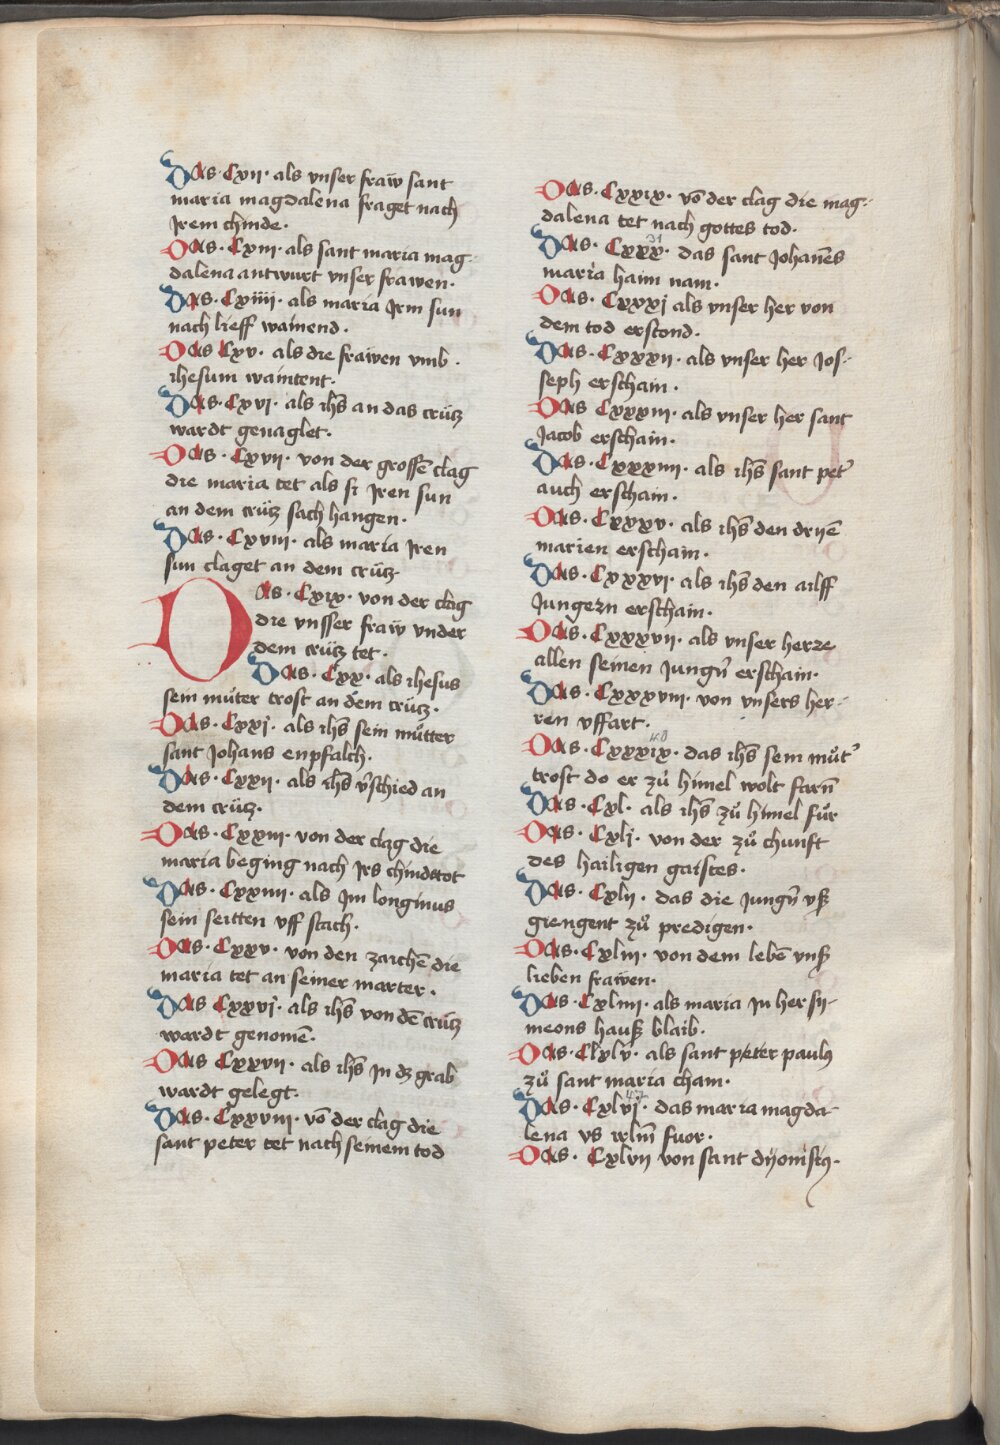 Das · Cxij · als vnser fraw sant
maria magdalena fraget nach
Jrem chinde ·
Das · Cxiij · als sant maria mag
dalena antwurt vnser frawen ·
Das · Cxiiij · als maria Jrm sun
nach lieff wainend ·
Das Cxv · als die frawen vmb ·
ihesum waintent ·
Das · Cxvi · als ihs̄ an das crütz
wardt genaglet ·
Das · Cxvij · von der grossē clag
die maria tet als si Jren sun
an dem crütz sach hangen ·
Das · Cxviij · als maria Jren
sun claget an dem crütz
Das · Cxix · von der clag
die vnsser fraw vnder
dem crütz tet ·
Das · Cxx · als ihesus
sein muter trost an dem crütz ·
Das · Cxxj · als ihs̄ sein mutter
sant Johans enpfalch ·
Das · Cxxij · als ihs̄ v̄schied an
dem crütz ·
Das · Cxxiij · von der clag die
maria beging nach Jrs chindstot
Das · Cxxiiij · als Jm longinus
sein seitten vff stach ·
Das · Cxxv · von den zaichē die
maria tet an seiner marter ·
Das Cxxvj · als ihs̄ von dē crütz
wardt genomē ·
Das Cxxvij · als ihs̄ Jn dz grab
wardt gelegt ·
Das · Cxxviij · vō der clag die
sant peter tet nach seinem tod
Das · Cxxix · vō der clag die mag-
dalena tet nach gottes tod ·
31
Das · Cxxx · das sant Johanēs
maria haim nam ·
Das · Cxxxj als vnser her von
dem tod erstond ·
Das · Cxxxij · als vnser her Jos-
seph erschain ·
Das Cxxxiij · als vnser her sant
Jacob erschain ·
Das · Cxxxiiij · als ihs̄ sant pet'
auch erschain ·
Das · Cxxxv · als ihs̄ den drijē
marien erschain ·
Das · Cxxxvi · als ihs̄ den ailff
Jungern erschain ·
Das · Cxxxvij · als vnser herre
allen seinen Jungn̄ erschain ·
Das · Cxxxviij · von vnsers her-
ren vffart ·
40
Das · Cxxxix · das ihs̄ sein muͦt'
trost do er zuͦ himel wolt farn̄
Das · Cxl · als ihs̄ zuͦ himel fuͦr
Das · Cxlj · von der zuͦ chunft
des hailigen gaistes ·
Das · Cxlij · das die Jungn̄ vß
giengent zuͦ predigen ·
Das · Cxliij · von dem lebē vnß
lieben frawen ·
Das · Cxliiij · als maria Jn her sy-
meons hauß blaib ·
Das · Clxlv · als sant peter paulꝯ
zuͦ sant maria cham ·
47
Das · Cxlvj · das maria magda-
lena vs irlm̄ fuor ·
Das · Cxlvij von sant dyonisiꝯ ·